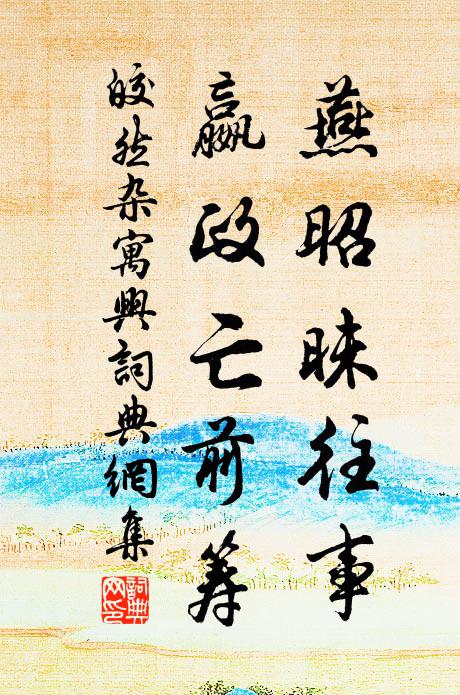 燕昭昧往事
嬴政亡前筹
皎然杂寓興詞典網集
詞典网印